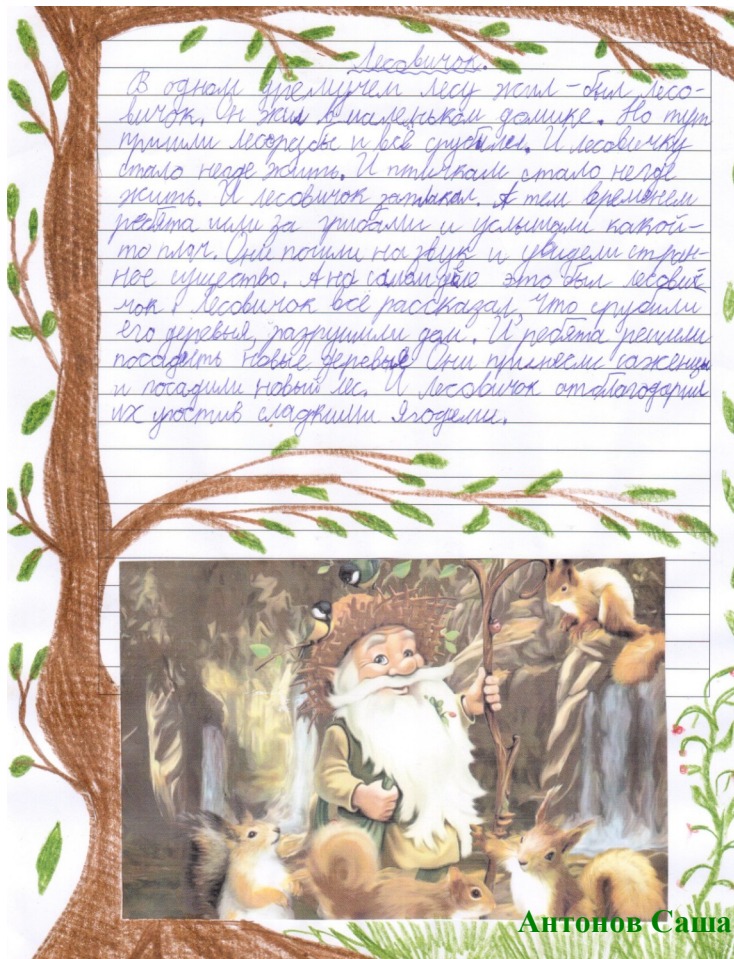 Лесовичок.
В одном дремучем лесу жил-был лесо-
вичок. Он жил в маленьком домике. Но тут
пришли лесорубы и всё срубили. И лесовичку
стало негде жить. И птичкам стало негде
жить. И лесовичок заплакал. А тем временем
ребята шли за грибами и услышали какой-
то плач. Они пошли на звук и увидели стран-
ное существо. А на самом деле это был лесови
чок. Лесовичок всё рассказал, что срубили
его деревья, разрушили дом. И ребята решили
посадить новые деревья. Они принесли саженцы
и посадили новый лес. И Лесовичок отблагодарил
их угостив сладкими ягодами.
Антонов Саша